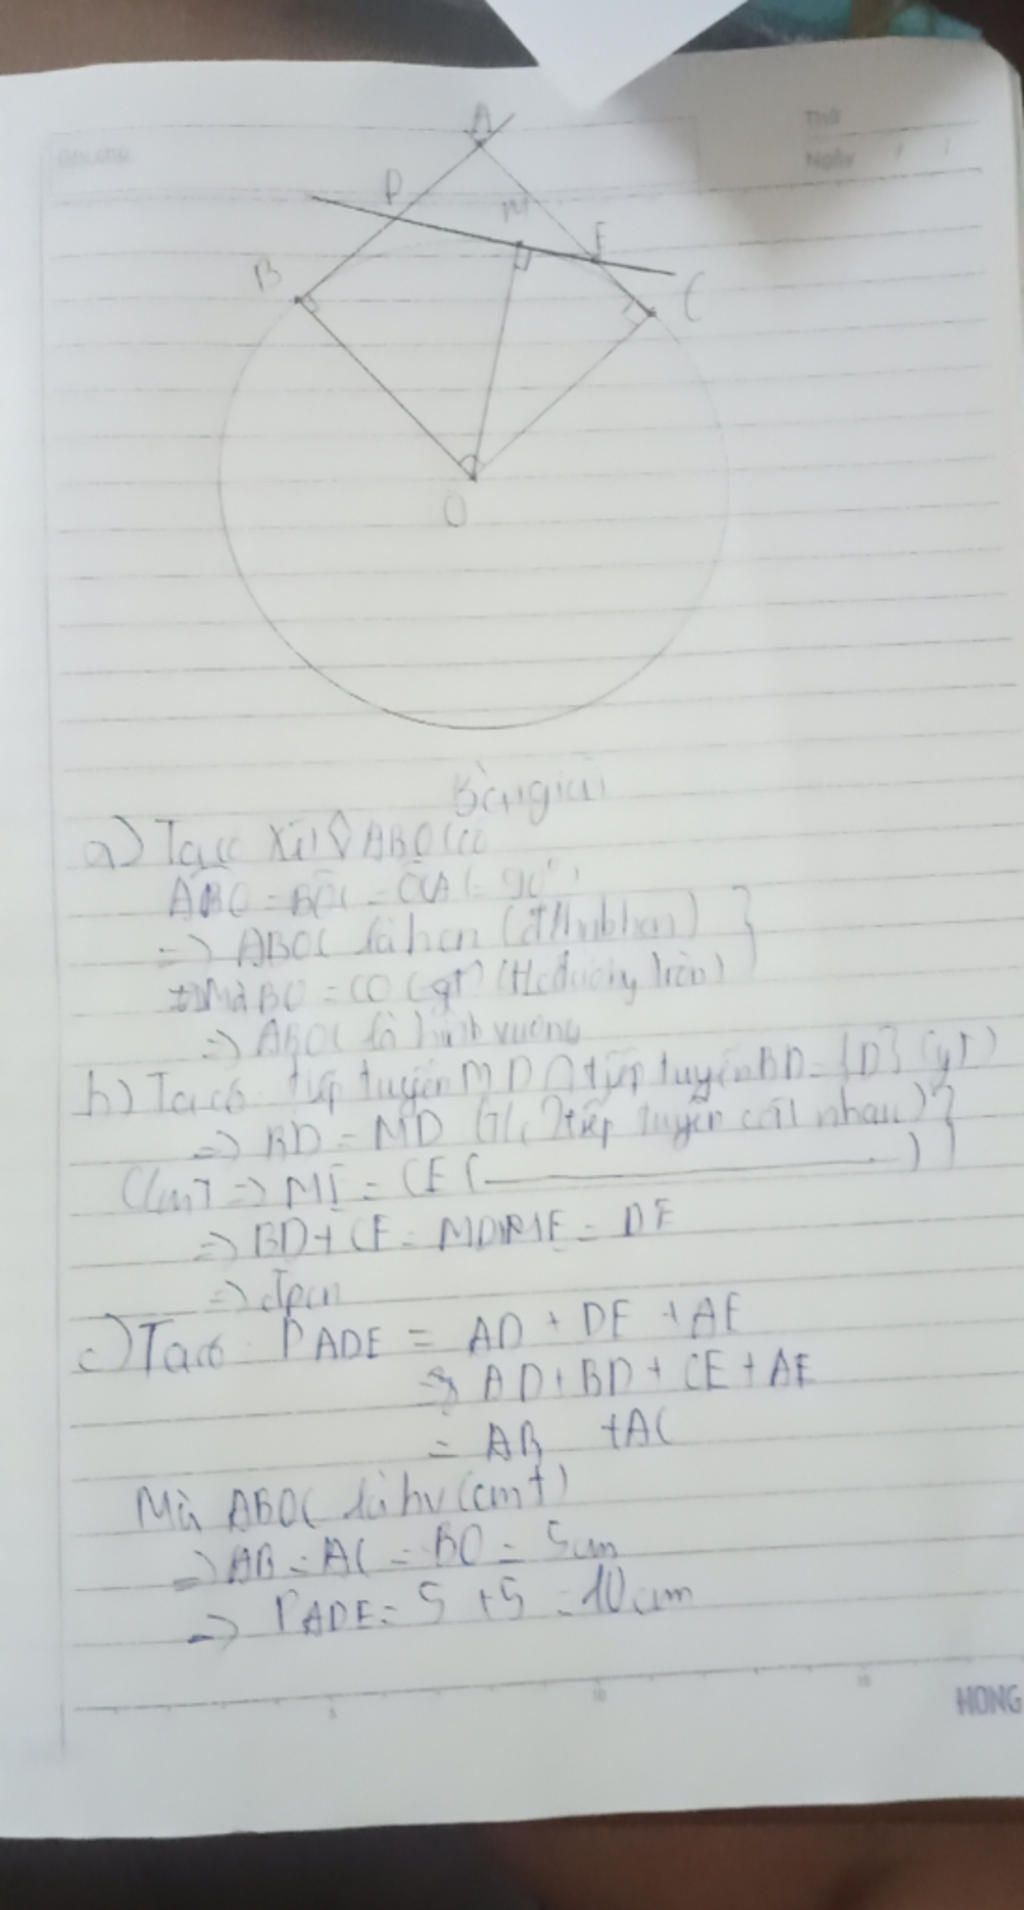 Ghi chú
Thứ
Ngày / /
A
D
M
E
B
C
O
Bài giải
a) Ta có Xét ◊ ABOC có
ABO = BOC = OCA (= 90°)
=> ABOC là hcn (dhnb hcn)
Mà BO = CO (gt)
=> ABOC là hình vuông
b) Ta có tiếp tuyến MD ∩ tiếp tuyến BD = {D} (gt)
=> BD = MD (T/c 2 tiếp tuyến cắt nhau)
Cmt => ME = CE ( ———— )
=> BD + CE = MD + ME = DE
=> đpcm
c) Ta có PADE = AD + DE + AE
= AD + BD + CE + AE
= AB + AC
Mà ABOC là hv (cmt)
=> AB = AC = BO = 5cm
=> PADE = 5 + 5 = 10cm
5 10 15
HONG